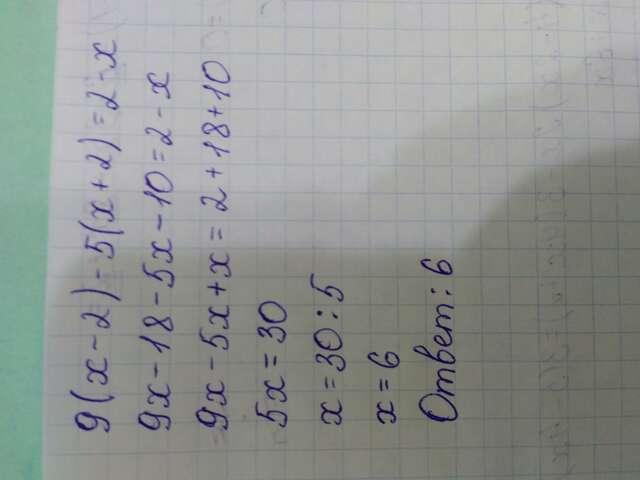 9(x-2)-5(x+2)=2-x
9x-18-5x-10=2-x
9x-5x+x=2+18+10
5x=30
x=30:5
x=6
Ответ: 6